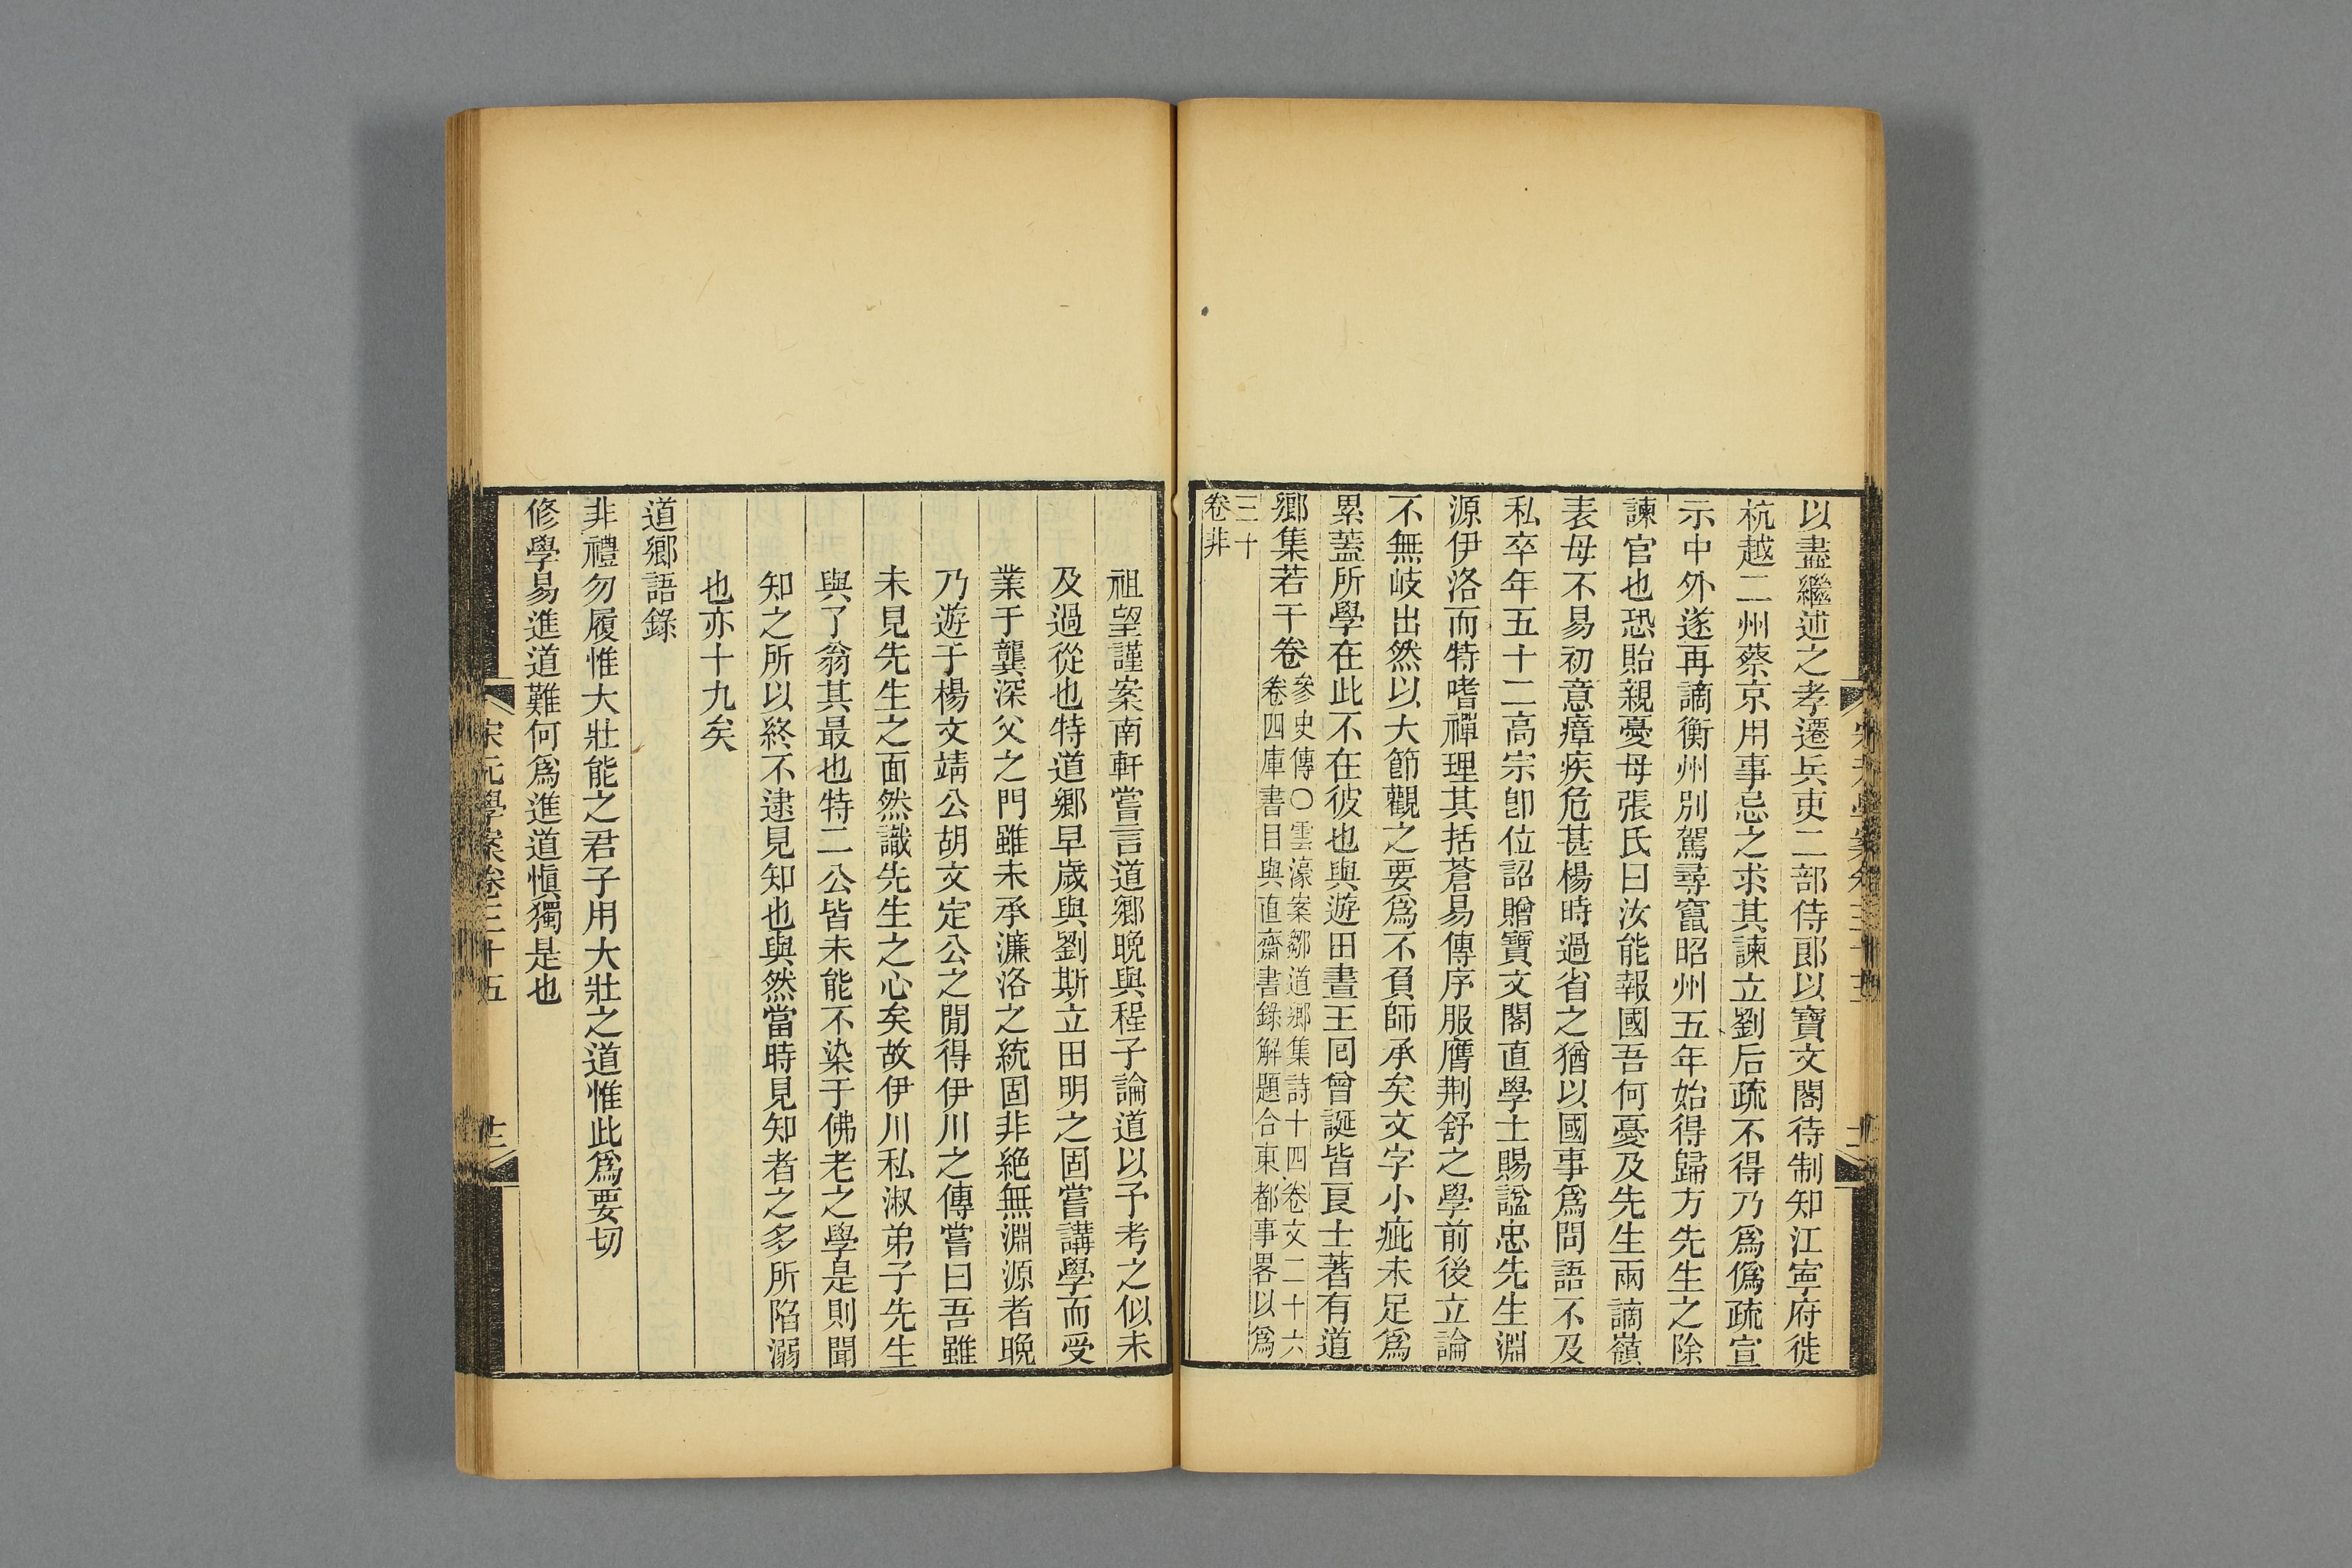 以盡繼述之孝遷兵吏二部侍郎以寶文閣待制知江寧府徙
杭越二州蔡京用事忌之求其諫立劉后疏不得乃爲僞疏宣
示中外遂再謫衡州別駕尋竄昭州五年始得歸方先生之除
諫官也恐貽親憂母張氏曰汝能報國吾何憂及先生兩謫嶺
表母不易初意瘴疾危甚楊時過省之猶以國事爲問語不及
私卒年五十二高宗卽位詔贈寶文閣直學士賜諡忠先生淵
源伊洛而特嗜禪理其括蒼易傳序服膺荆舒之學前後立論
不無岐出然以大節觀之要爲不負師承矣文字小疵未足爲
累蓋所學在此不在彼也與遊田晝王回曾誕皆良士著有道
鄉集若干卷
參史傳〇雲濠案鄒道鄉集詩十四卷文二十六
卷四庫書目與直齋書錄解題合東都事畧以爲
三十
卷非
祖望謹案南軒嘗言道鄉晚與程子論道以予考之似未
及過從也特道鄉早歲與劉斯立田明之固嘗講學而受
業于龔深父之門雖未承濂洛之統固非絶無淵源者晚
乃遊于楊文靖公胡文定公之閒得伊川之傳嘗曰吾雖
未見先生之面然識先生之心矣故伊川私淑弟子先生
與了翁其最也特二公皆未能不染于佛老之學是則聞
知之所以終不逮見知也與然當時見知者之多所陷溺
也亦十九矣
道鄉語錄
非禮勿履惟大壯能之君子用大壯之道惟此爲要切
修學易進道難何爲進道愼獨是也
宋元學案卷三十五